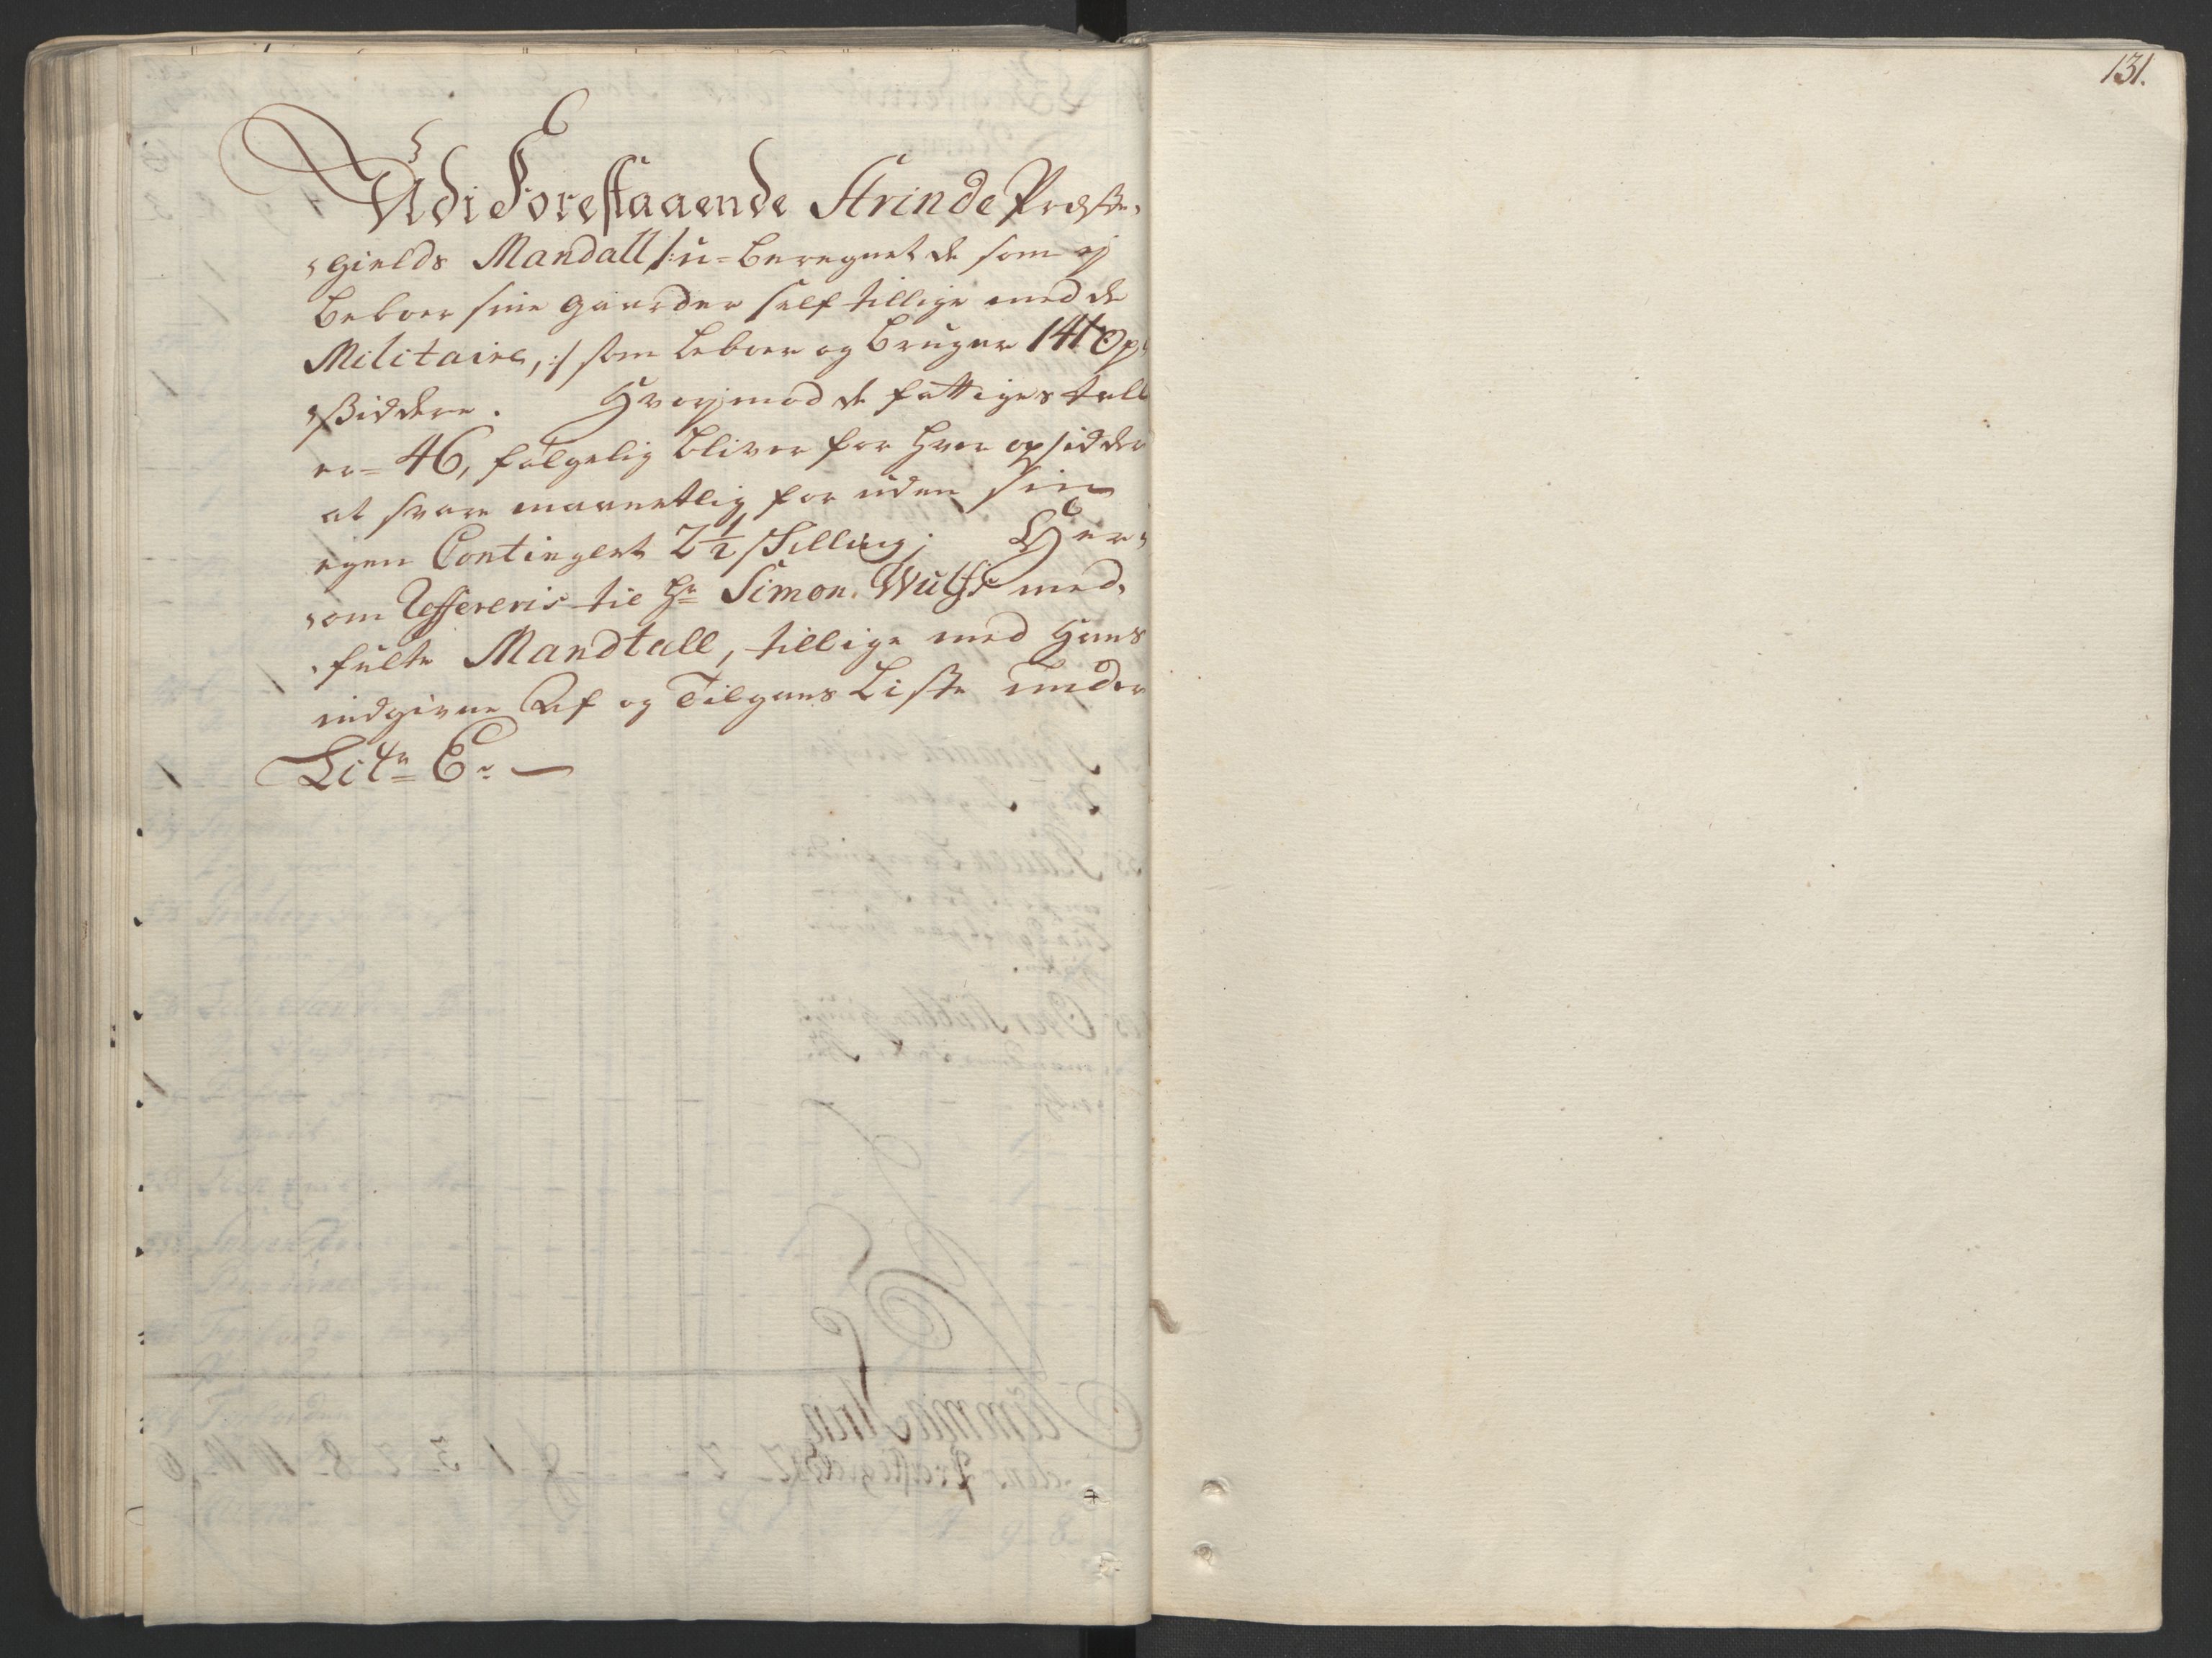 131.
Udi Forestaaende Strinde Præste-
gields Mandall /: u-beregnet de som ej
beboer sine gaarder self tillige med de
Militaire, :/ som beboer og bruger 141 Op-
siddere. Hvorjmod de fattiges tall
er = 46, følgelig bliver for hver opsidder
at svare maanetlig for uden sin
egen Contingent 2½ skilling; Her-
om Refereris til Hr Simon Wulfs med-
fulte Mandtall, tillige med Hans
indgivne Af og Tilgans Liste under
Litr E.